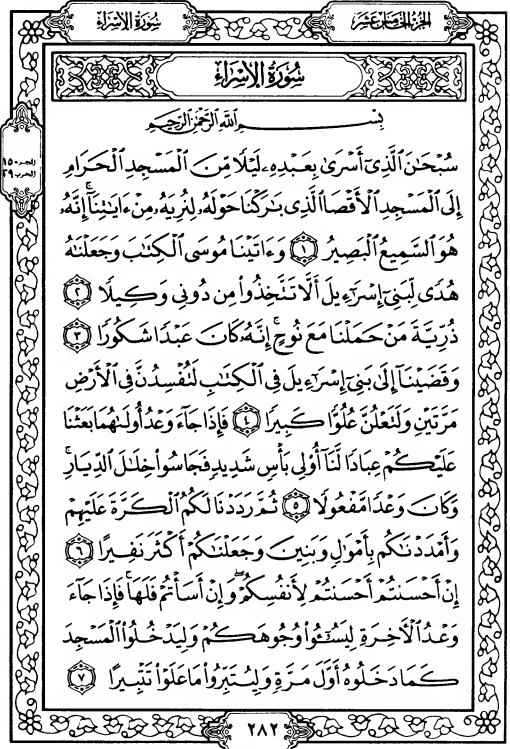 الجزء الخامس عشر
سورة الإسراء
الجزء ١٥
الحزب ٢٩
سُورَةُ الإِسْرَاءِ
بِسْمِ اللَّهِ الرَّحْمَٰنِ الرَّحِيمِ
سُبْحَٰنَ ٱلَّذِىٓ أَسْرَىٰ بِعَبْدِهِۦ لَيْلًا مِّنَ ٱلْمَسْجِدِ ٱلْحَرَامِ
إِلَى ٱلْمَسْجِدِ ٱلْأَقْصَا ٱلَّذِى بَٰرَكْنَا حَوْلَهُۥ لِنُرِيَهُۥ مِنْ ءَايَٰتِنَآ ۚ إِنَّهُۥ
هُوَ ٱلسَّمِيعُ ٱلْبَصِيرُ ١ وَءَاتَيْنَا مُوسَى ٱلْكِتَٰبَ وَجَعَلْنَٰهُ
هُدًى لِّبَنِىٓ إِسْرَٰٓءِيلَ أَلَّا تَتَّخِذُوا۟ مِن دُونِى وَكِيلًا ٢
ذُرِّيَّةَ مَنْ حَمَلْنَا مَعَ نُوحٍ ۚ إِنَّهُۥ كَانَ عَبْدًا شَكُورًا ٣
وَقَضَيْنَآ إِلَىٰ بَنِىٓ إِسْرَٰٓءِيلَ فِى ٱلْكِتَٰبِ لَتُفْسِدُنَّ فِى ٱلْأَرْضِ
مَرَّتَيْنِ وَلَتَعْلُنَّ عُلُوًّا كَبِيرًا ٤ فَإِذَا جَآءَ وَعْدُ أُولَىٰهُمَا بَعَثْنَا
عَلَيْكُمْ عِبَادًا لَّنَآ أُو۟لِى بَأْسٍ شَدِيدٍ فَجَاسُوا۟ خِلَٰلَ ٱلدِّيَارِ ۚ
وَكَانَ وَعْدًا مَّفْعُولًا ٥ ثُمَّ رَدَدْنَا لَكُمُ ٱلْكَرَّةَ عَلَيْهِمْ
وَأَمْدَدْنَٰكُم بِأَمْوَٰلٍ وَبَنِينَ وَجَعَلْنَٰكُمْ أَكْثَرَ نَفِيرًا ٦
إِنْ أَحْسَنتُمْ أَحْسَنتُمْ لِأَنفُسِكُمْ ۖ وَإِنْ أَسَأْتُمْ فَلَهَا ۚ فَإِذَا جَآءَ
وَعْدُ ٱلْءَاخِرَةِ لِيَسُۥٓـُٔوا۟ وُجُوهَكُمْ وَلِيَدْخُلُوا۟ ٱلْمَسْجِدَ
كَمَا دَخَلُوهُ أَوَّلَ مَرَّةٍ وَلِيُتَبِّرُوا۟ مَا عَلَوْا۟ تَتْبِيرًا ٧
٢٨٢